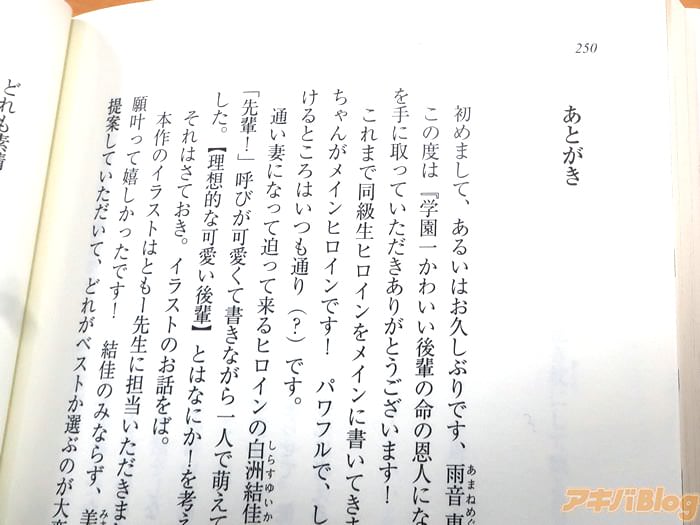 250
あとがき
初めまして、あるいはお久しぶりです、雨音恵
あまねめぐ
この度は『学園一かわいい後輩の命の恩人にな
を手に取っていただきありがとうございます！
これまで同級生ヒロインをメインに書いてき
ちゃんがメインヒロインです！　パワフルで、し
けるところはいつも通り（？）です。
通い妻になって迫って来るヒロインの白洲結佳
しらすゆいか
「先輩！」呼びが可愛くて書きながら一人で萌えて
した。【理想的な可愛い後輩】とはなにか！を考え
それはさておき。イラストのお話をば。
本作のイラストはともー先生に担当いただきま
願叶って嬉しかったです！　結佳のみならず、美
提案していただいて、どれがベストか選ぶのが大変
どれも素晴
アキバBlog